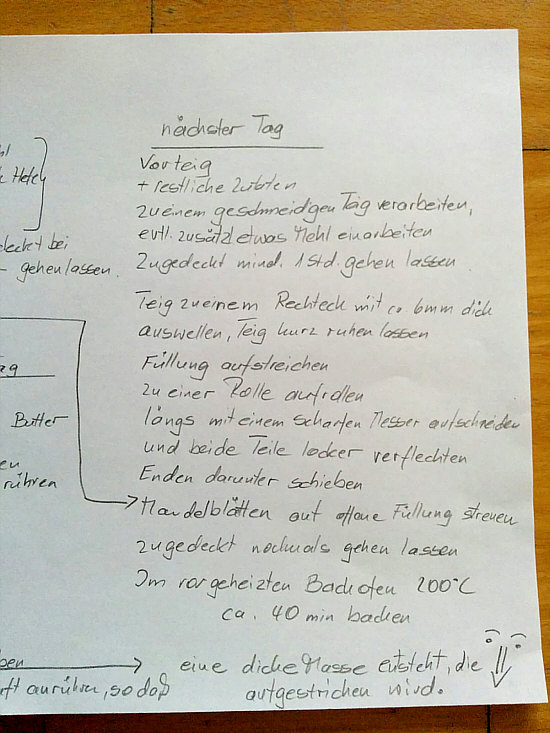 nächster Tag
Vorteig
+ restliche Zutaten
zu einem geschmeidigen Taig verarbeiten,
evtl. zusätzl etwas Mehl einarbeiten
Zugedeckt mind. 1 Std. gehen lassen
Teig zu einem Rechteck mit ca 6mm dick
auswellen, Teig kurz ruhen lassen
Füllung aufstreichen
zu einer Rolle aufrollen
längs mit einem scharfen Messer aufschneiden
und beide Teile locker verflechten
Enden darunter schieben
Mandelblätten auf offene Füllung streuen
zugedeckt nochmals gehen lassen
Im vorgeheizten Backofen 200°C
ca. 40 min backen
eine dicke Masse entsteht, die
aufgestrichen wird.
Hefe
deckt bei
- gehen lassen.
Butter
rühren
ft anrühren, so daß